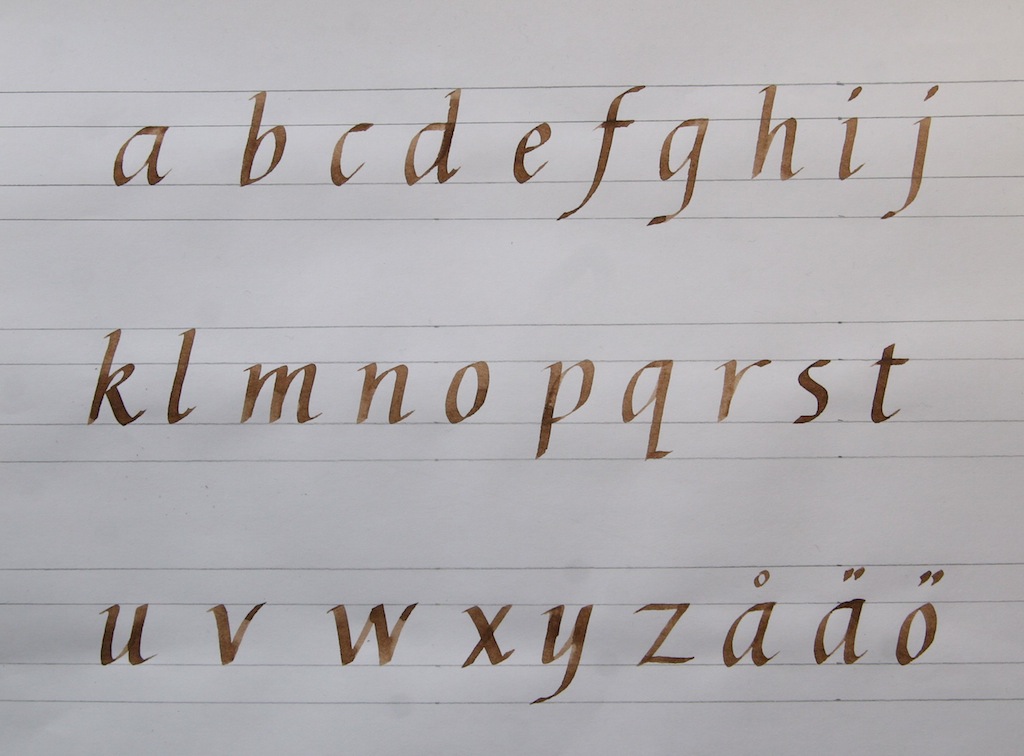 a b c d e f g h i j
k l m n o p q r s t
u v w x y z å ä ö